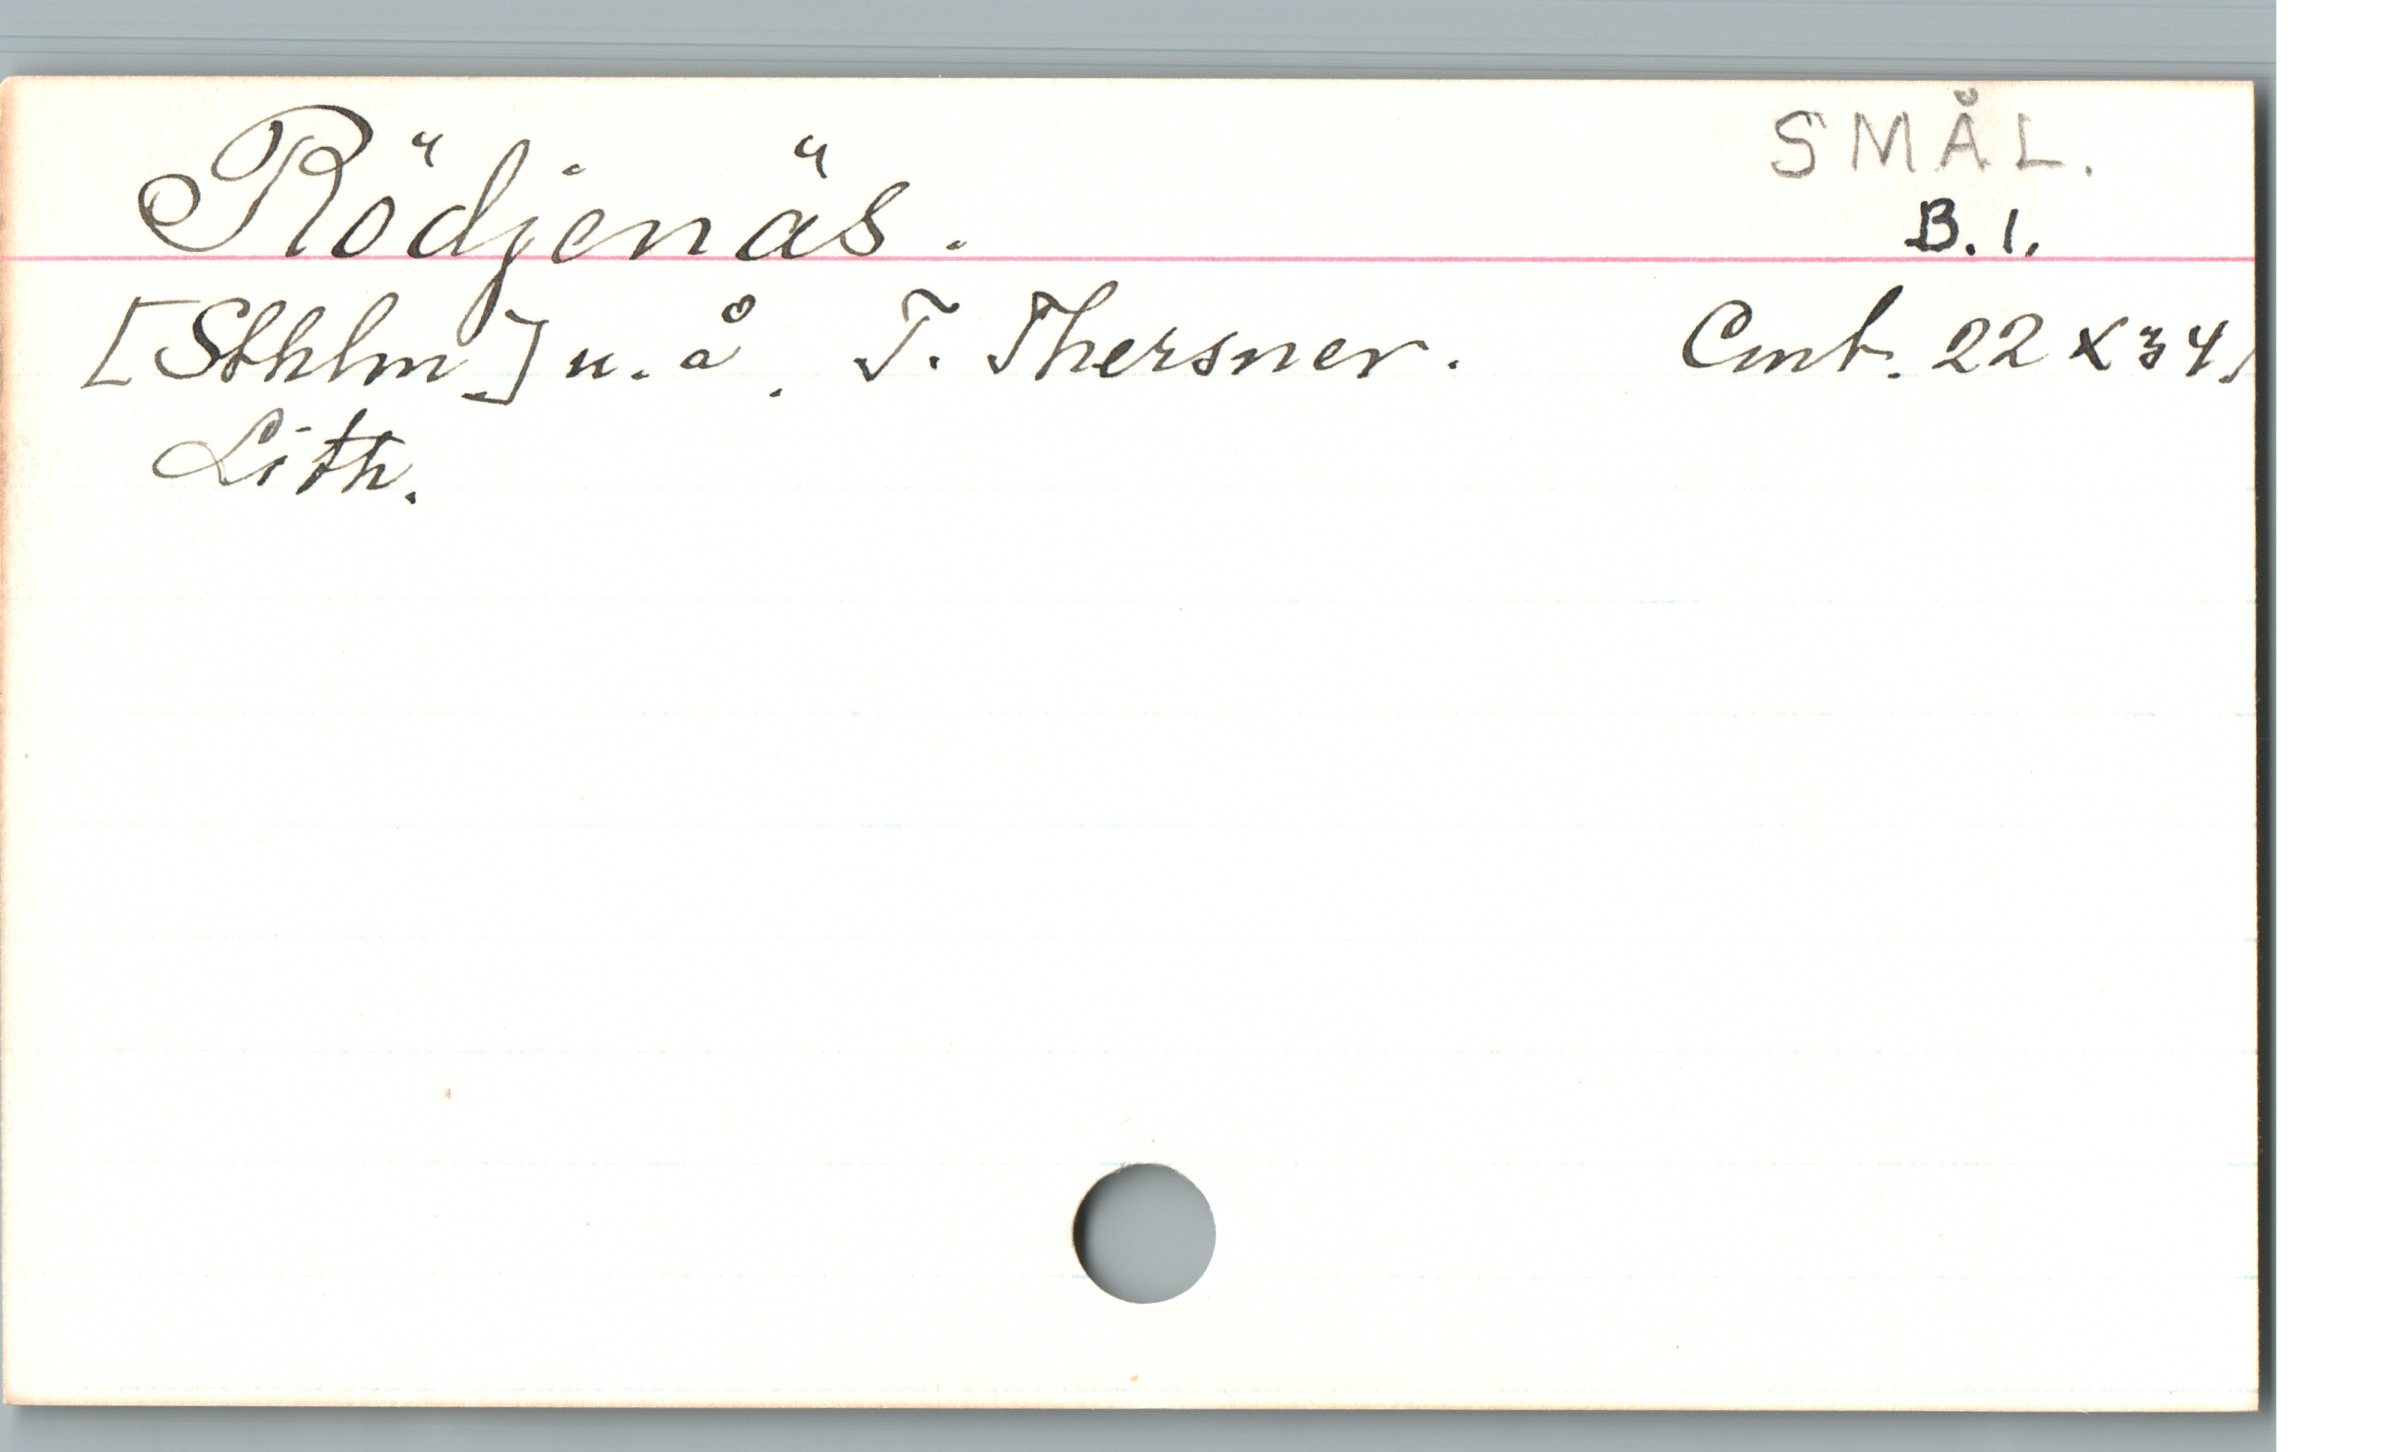 Rödjenäs.
SMÅL.
B. 1.
[Sthlm.] u. å. T. Thersner. Cmt. 22 x 34,
Lith.